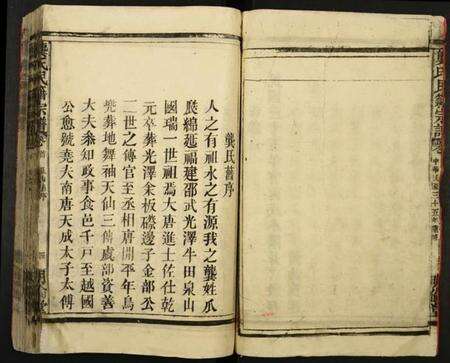 龔氏舊序
人之有祖水之有源我之龔姓瓜
瓞綿延福建邵武光澤牛田泉山
國瑞一世祖焉大唐進士佐仕乾
元卒葬光澤余板磜邊子金部公
二世之傳官至丞相唐開平年烏
兠葬地舞袖天仙三傳虞部資善
大夫叅知政事食邑千戸至越國
公愈號堯夫南唐天成太子太傅